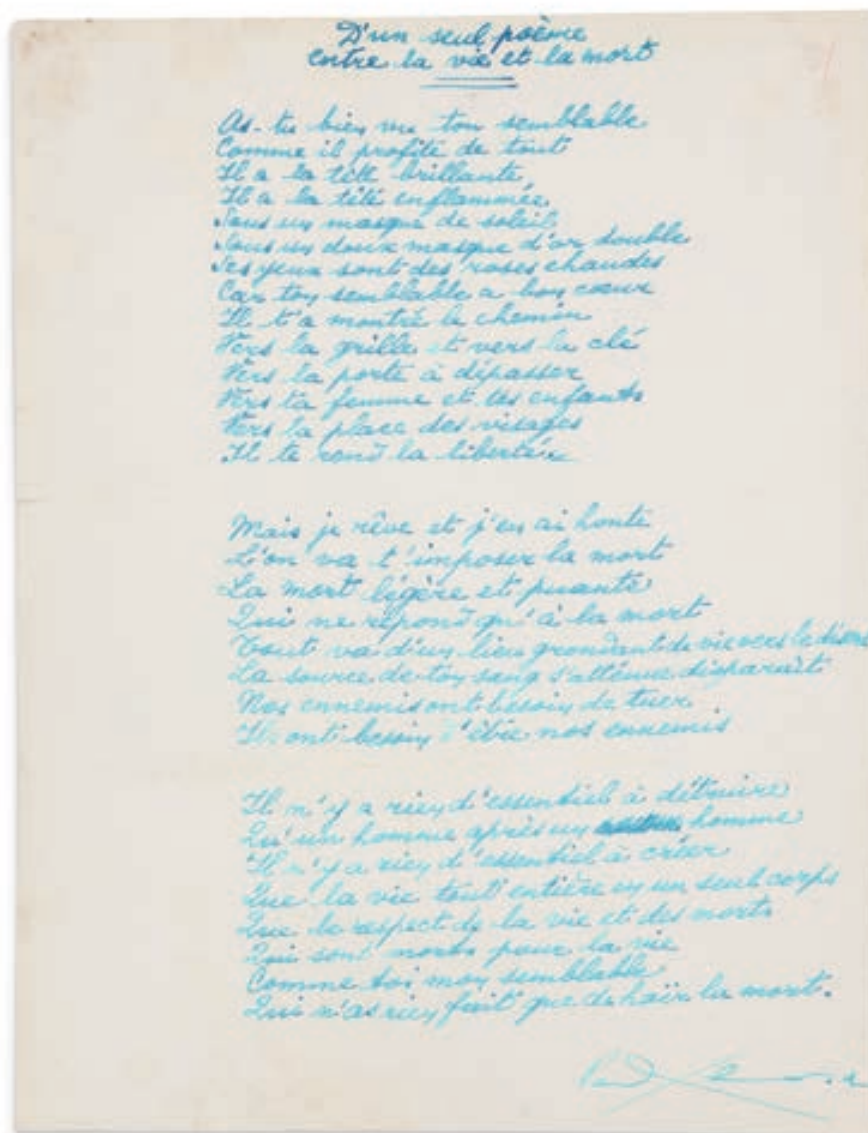 D'un seul poème
entre la vie et la mort
As-tu bien vu ton semblable
Comme il profite de tout
Il a la tête brillante
Il a la tête enflammée
Sous un masque de soleil
Sous un doux masque d'or double
Ses yeux sont des roses chaudes
Car ton semblable a bon cœur
Il t'a montré le chemin
Vers la grille et vers la clé
Vers la porte à dépasser
Vers ta femme et tes enfants
Vers la place des visages
Il te rend la liberté.
Mais je rêve et j'en ai honte
L'on va t'imposer la mort
La mort légère et puante
Qui ne répond qu'à la mort
Tout va d'un lieu grondant de vie vers le
La source de ton sang s'atténue disparaît
Nos ennemis ont besoin de tuer
Ils ont besoin d'être nos ennemis
Il n'y a rien d'essentiel à détruire
Qu'un homme après un homme
Il n'y a rien d'essentiel à créer
Que la vie tout entière en un seul corps
Que le respect de la vie et des morts
Qui sont morts pour la vie
Comme toi mon semblable
Qui n'as rien fait que de haïr la mort.